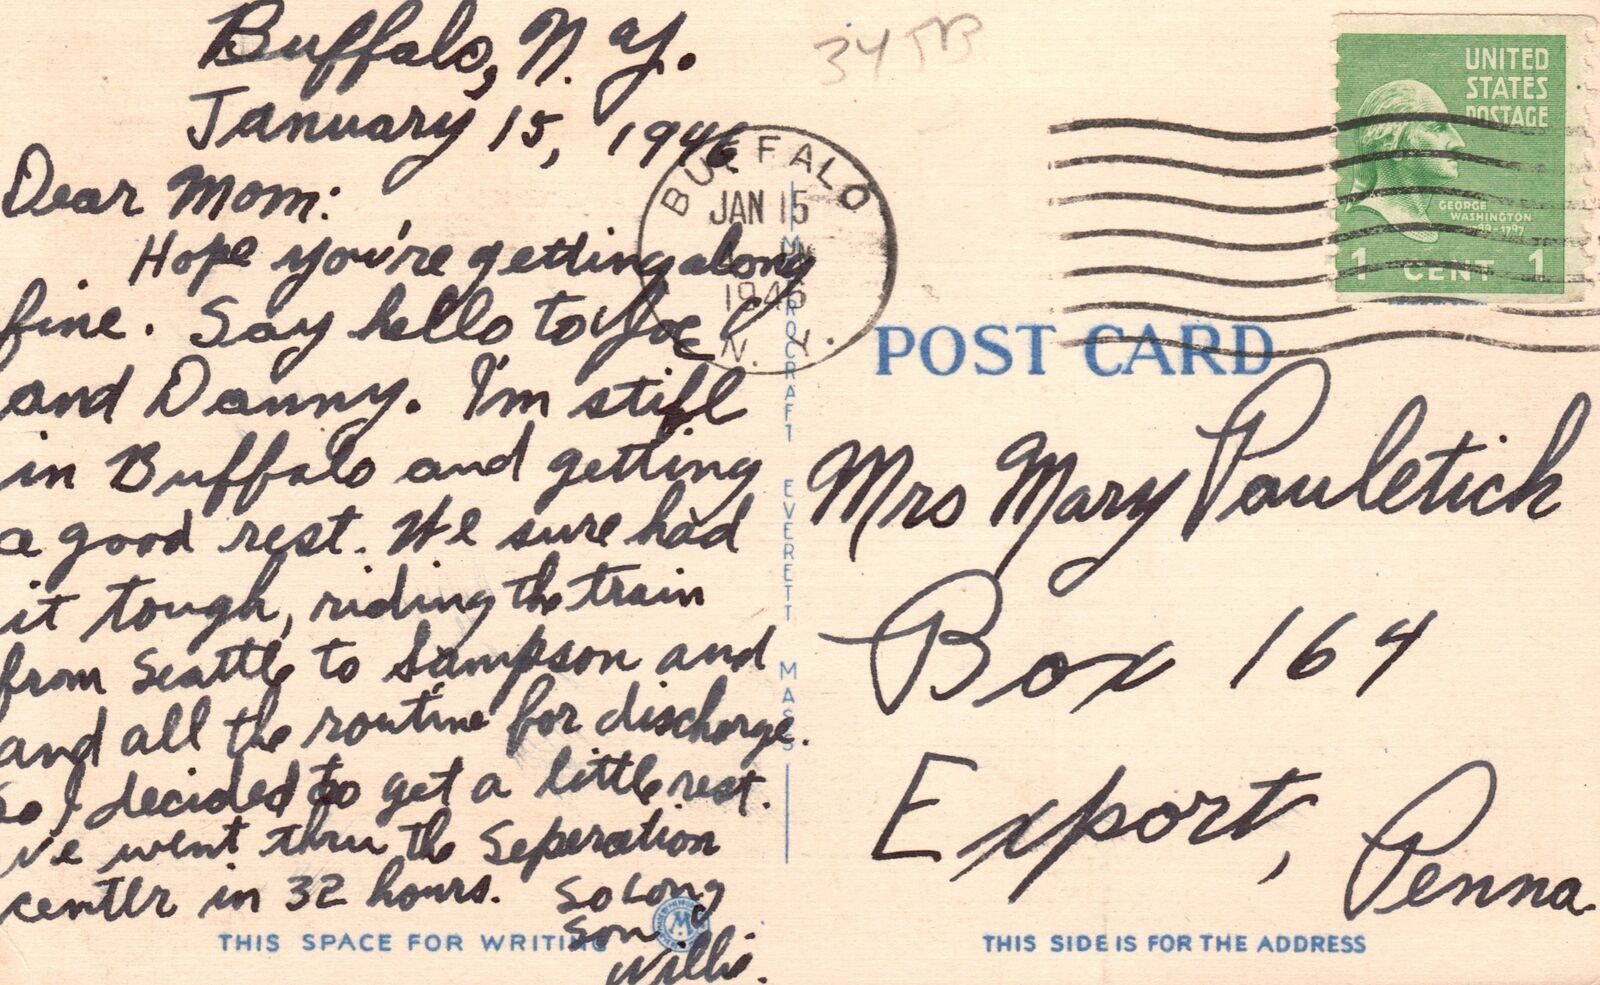 Buffalo, N. Y.
January 15, 1946
Dear Mom:
Hope you're getting along
fine. Say hello to Joe
and Danny. I'm still
in Buffalo and getting
a good rest. We sure had
it tough, riding the train
from Seattle to Sampson and
and all the routine for discharge.
So I decided to get a little rest.
We went thru the Seperation
center in 32 hours. So Long
Son
Willie.
THIS SPACE FOR WRITING
BUFFALO
JAN 15
1946
N. Y.
METROCRAFT EVERETT MASS
UNITED
STATES
POSTAGE
GEORGE
WASHINGTON
1789-1797
1 CENT 1
POST CARD
Mrs Mary Pauletich
Box 164
Export,
Penna.
THIS SIDE IS FOR THE ADDRESS